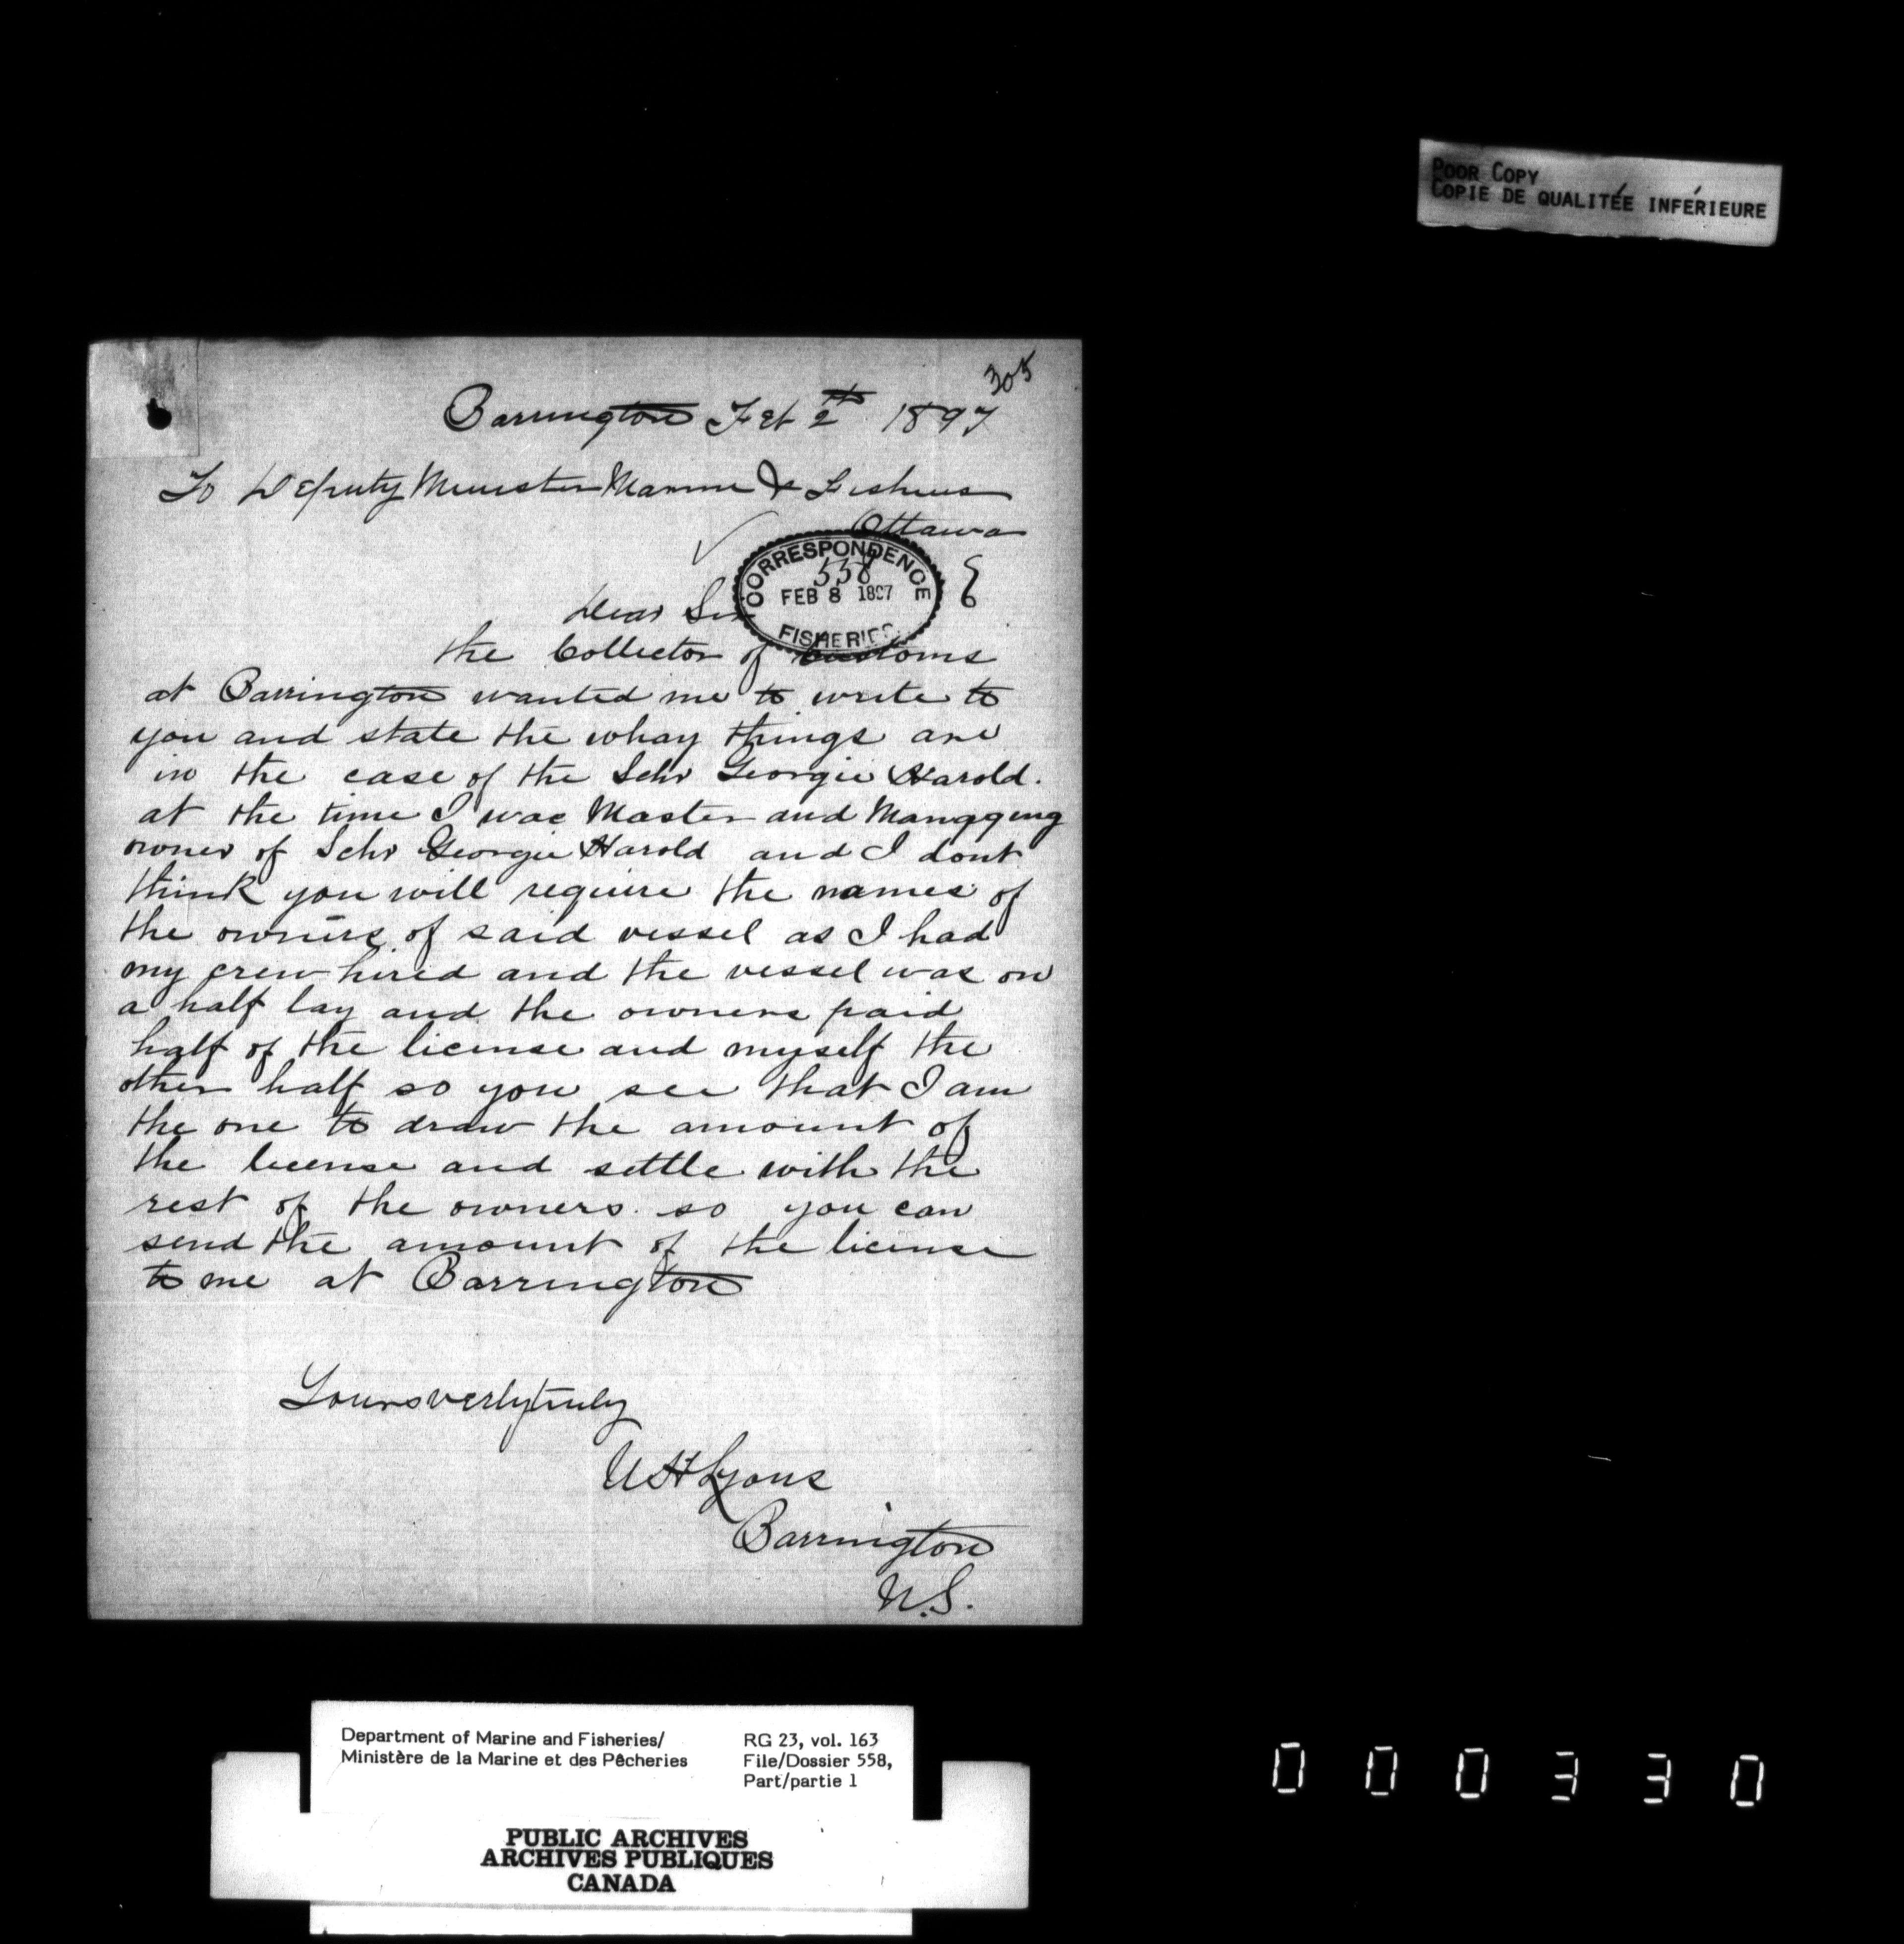 POOR COPY
COPIE DE QUALITÉE INFÉRIEURE
305
Barrington Feb 2th 1897
To Deputy Minister Marine & Fisheries
Ottawa
CORRESPONDENCE
558
FEB 8 1897
FISHERIES
Dear Sir
the Collector of Customs
at Barrington wanted me to write to
you and state the whay things are
in the case of the Schr Georgie Harold.
at the time I was Master and Mangging
owner of Schr Georgie Harold and I dont
think you will require the names of
the owners of said vessel as I had
my crew hired and the vessel was on
a half lay and the owners paid
half of the license and myself the
other half so you see that I am
the one to draw the amount of
the license and settle with the
rest of the owners. so you can
send the amount of the license
to me at Barrington
Yours verly truly
Lyons
Barrington
N.S.
Department of Marine and Fisheries/
Ministère de la Marine et des Pêcheries
RG 23, vol. 163
File/Dossier 558,
Part/partie 1
PUBLIC ARCHIVES
ARCHIVES PUBLIQUES
CANADA
000330